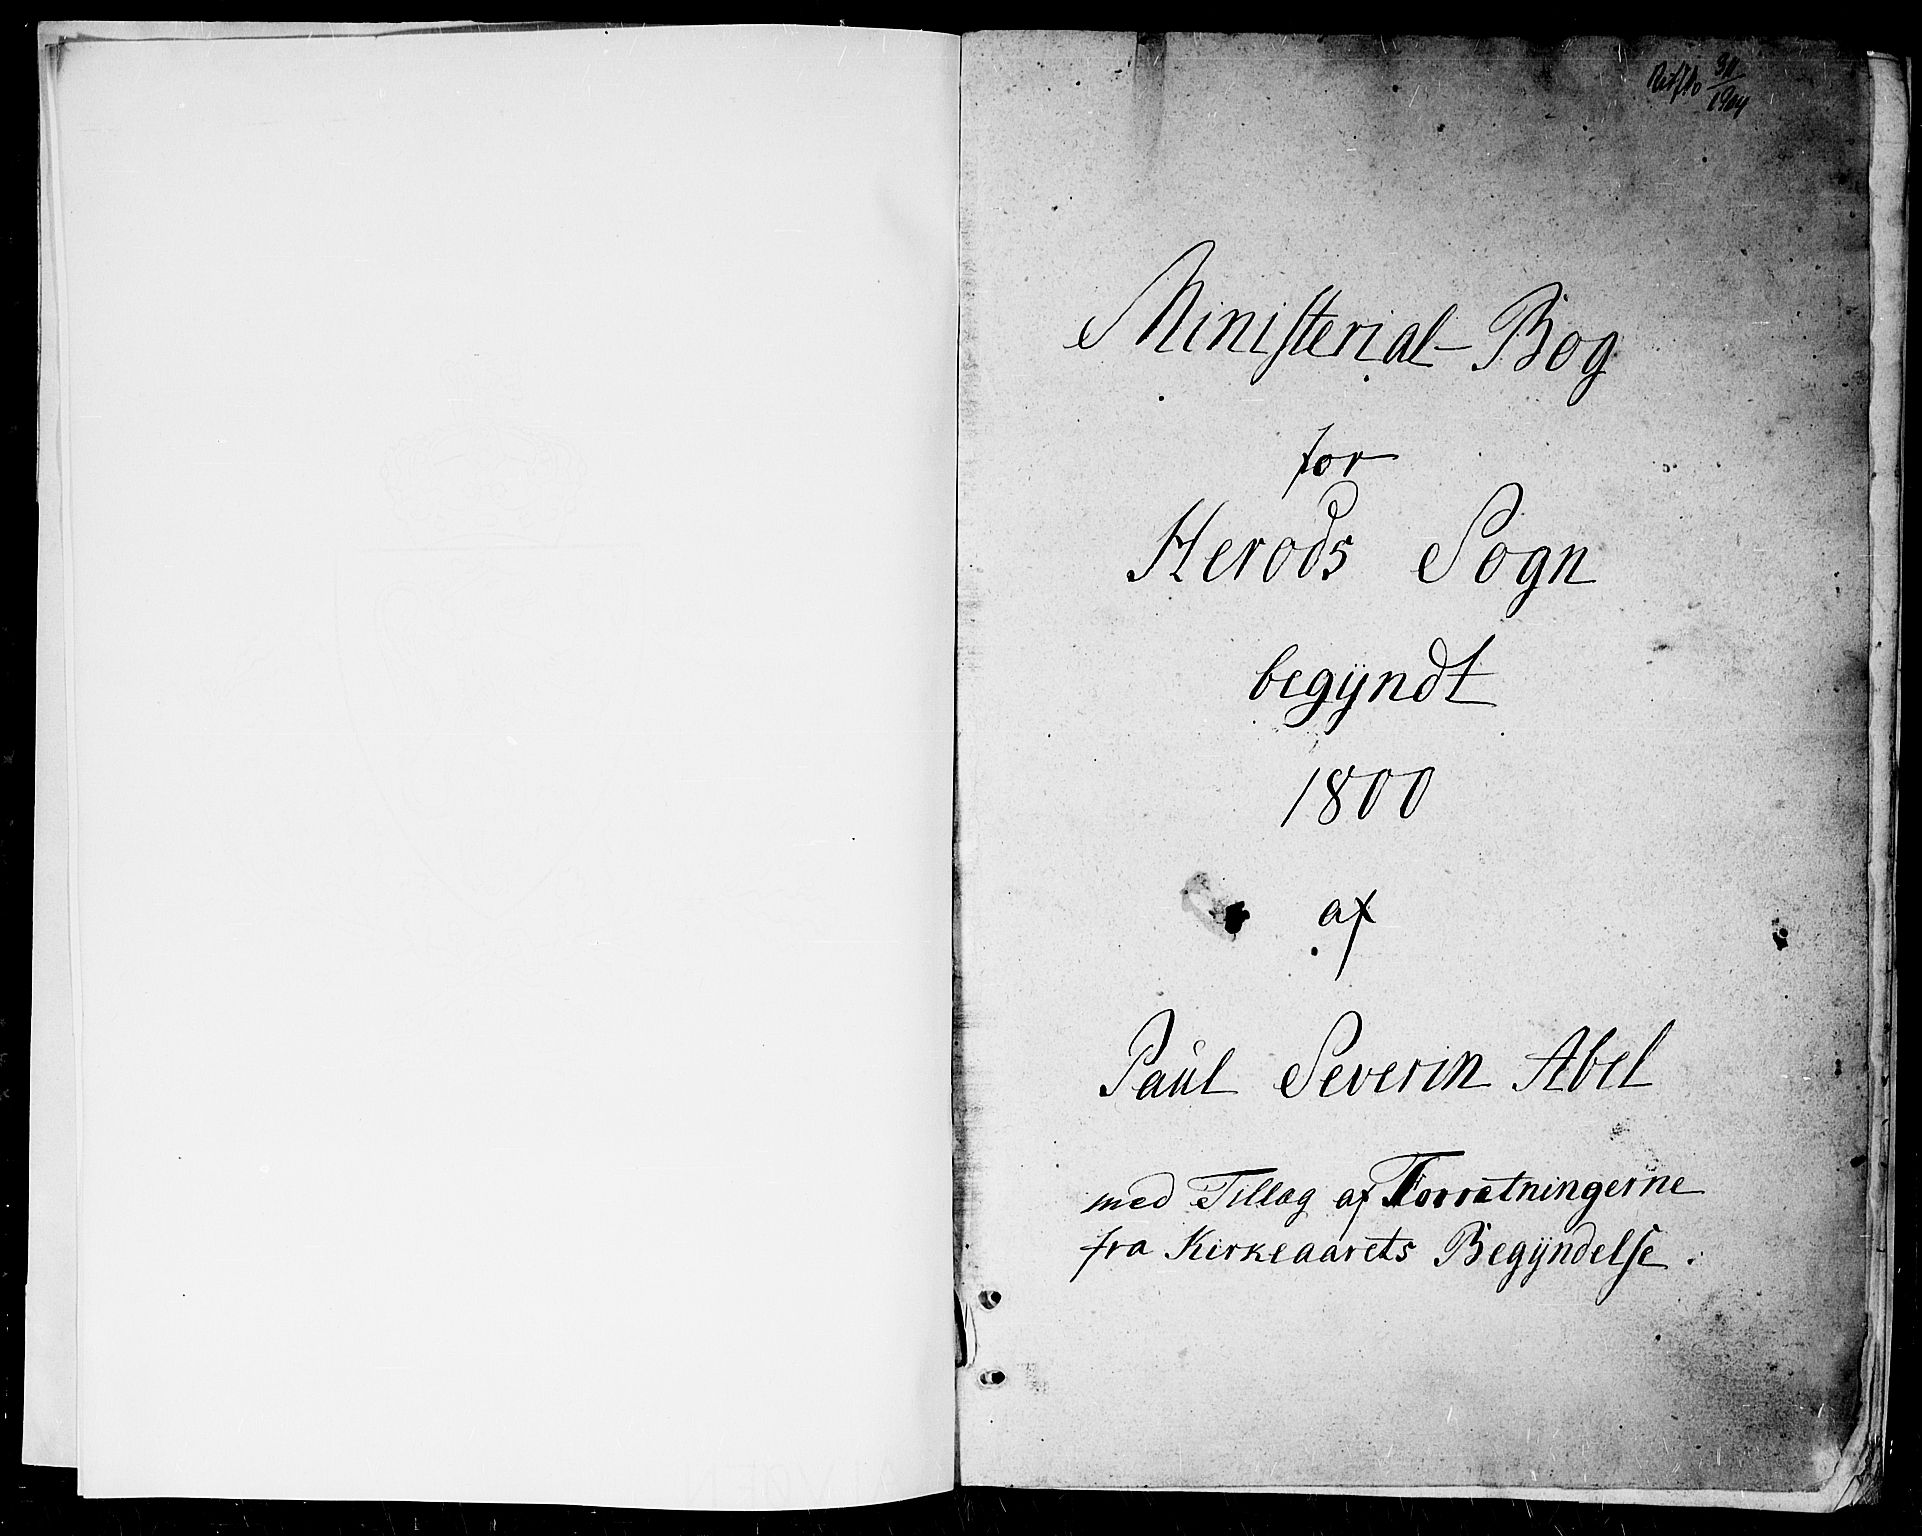 31
1904
Ministerial-Bog
for
Herods Sogn
begÿndt
1800
af
Paul Severin Abel
med Tillæg af Forretningerne
fra Kirkeaarets Begÿndelse.